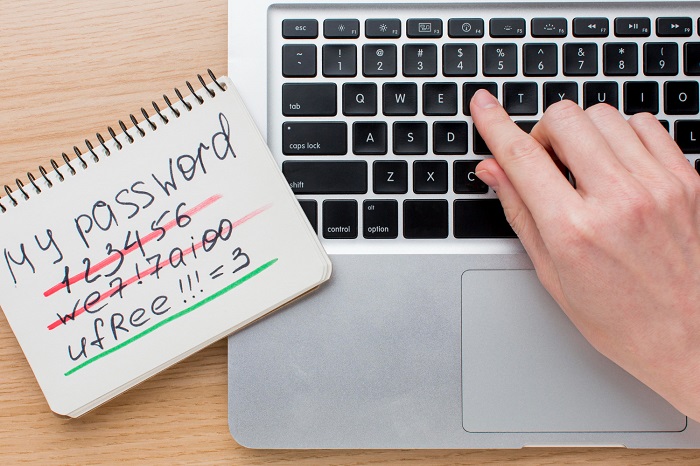 My password
123456
we7!7aio0
ufRee!!!=3
esc F1 F2 F3 F4 F5 F6 F7 F8 F9
~ ` ! 1 @ 2 # 3 $ 4 % 5 ^ 6 & 7 * 8 ( 9
tab Q W E T Y U I O
caps lock A S D
shift Z X C
control alt option